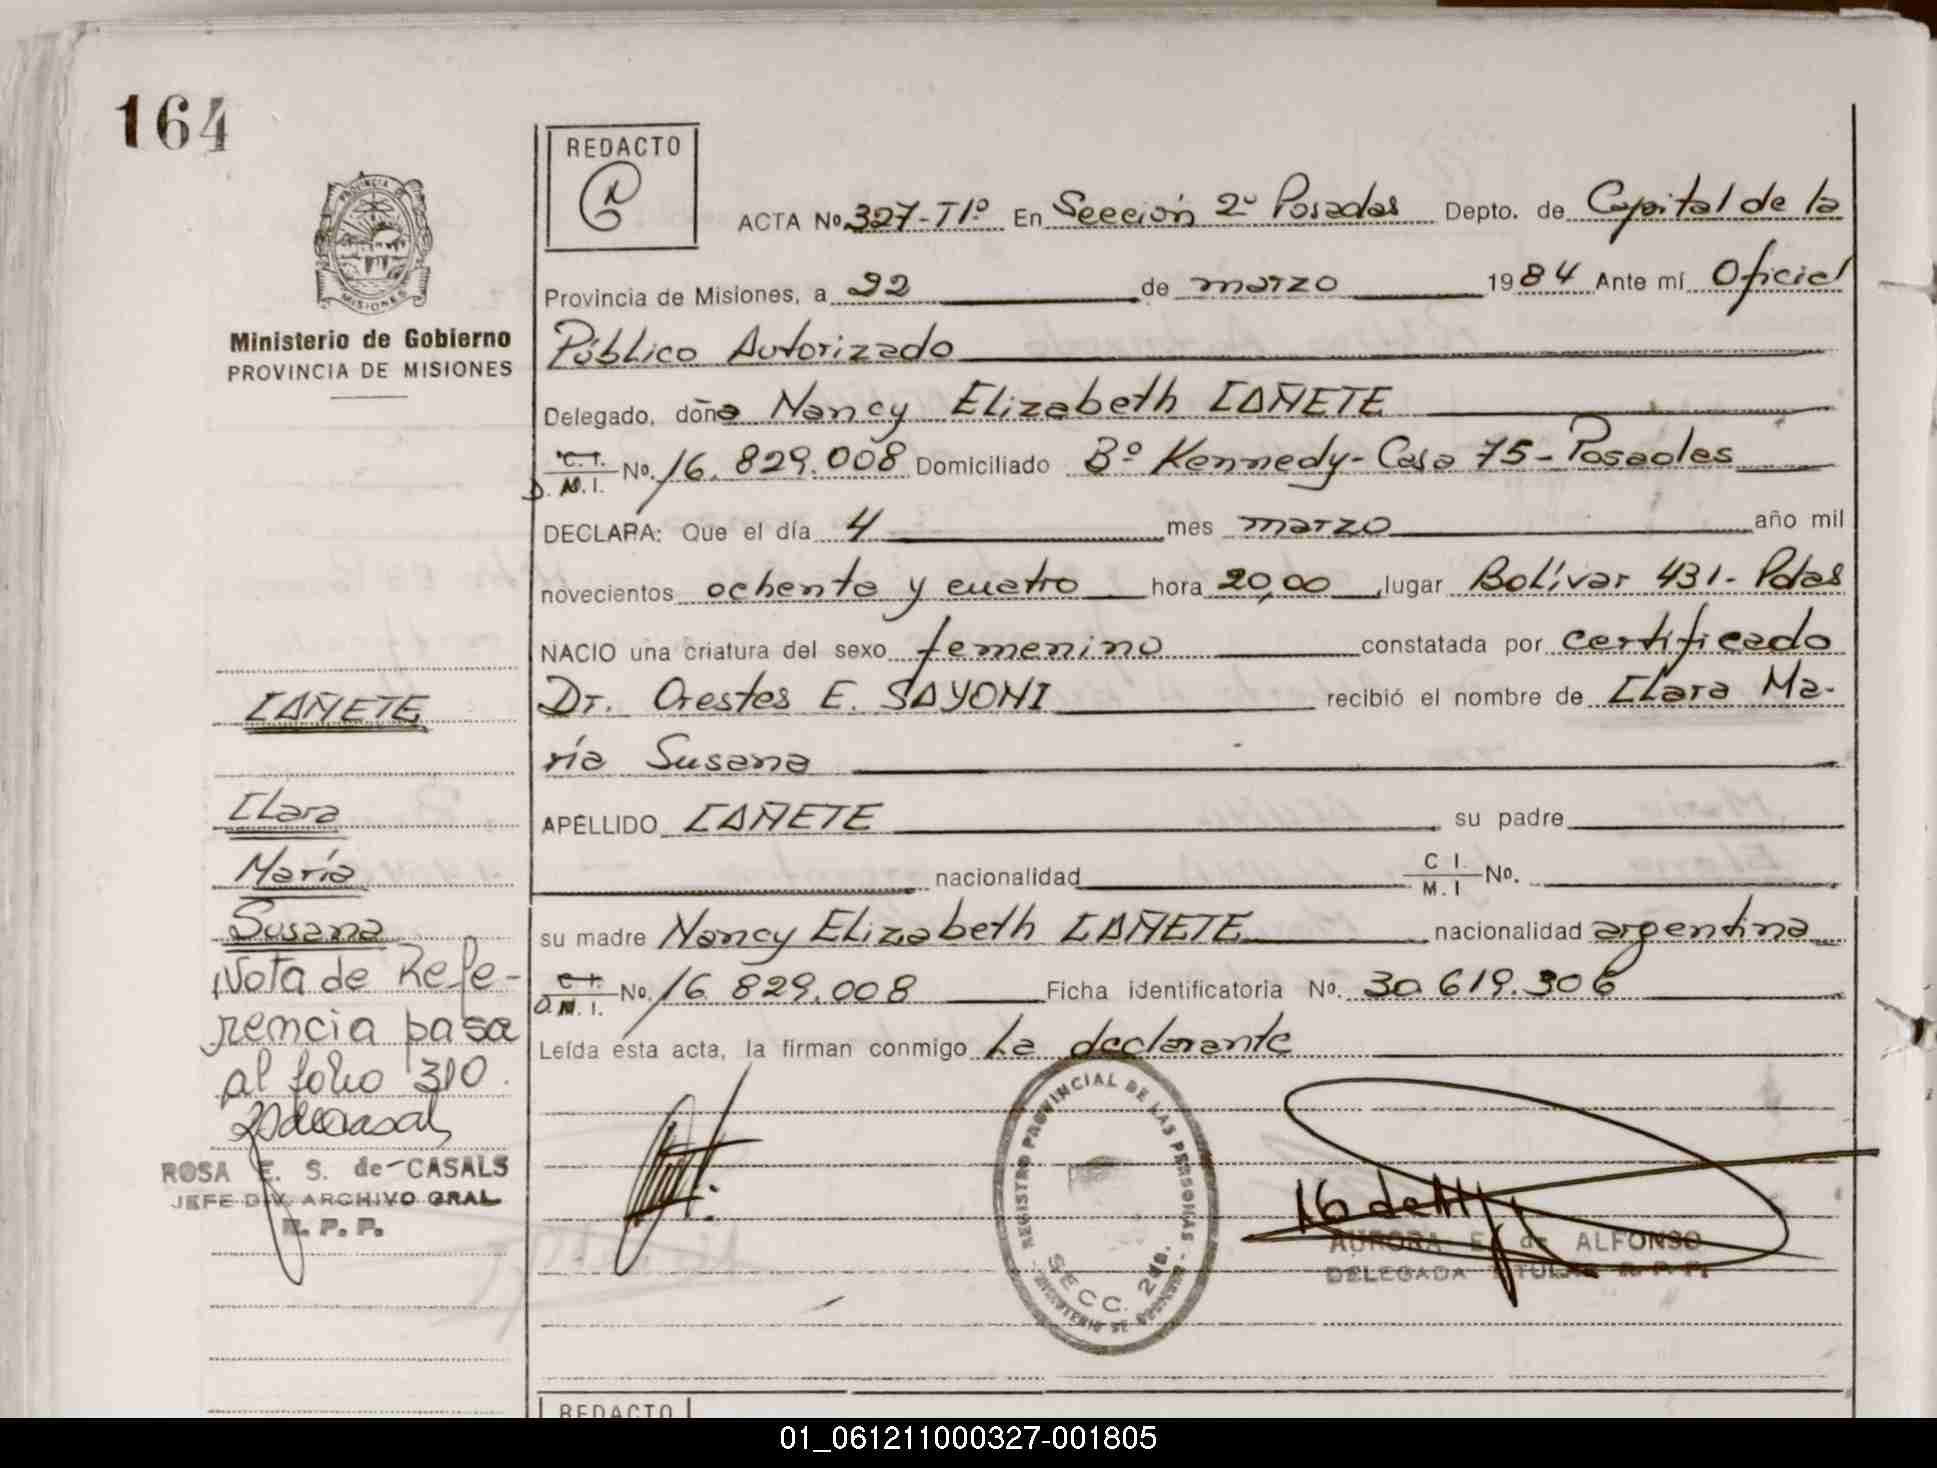 164
REDACTO
PROVINCIA DE
MISIONES
Ministerio de Gobierno
PROVINCIA DE MISIONES
ACTA No. 327-T1º En Sección 2º Posadas Depto. de Capital de la
Provincia de Misiones, a 22 de marzo 1984 Ante mí Oficial
Público Autorizado
Delegado, doña Nancy Elizabeth CAÑETE
C. I.
D. M. I. No. 16.829.008 Domiciliado Bº Kennedy - Casa 75 - Posadas
DECLARA: Que el día 4 mes marzo año mil
novecientos ochenta y cuatro hora 20,00 lugar Bolívar 431 - Pdas
NACIO una criatura del sexo femenino constatada por certificado
Dr. Orestes E. SAYONI recibió el nombre de Clara Ma-
ría Susana
APELLIDO CAÑETE su padre
nacionalidad C I. M. I No.
su madre Nancy Elizabeth CAÑETE nacionalidad argentina
C. I.
D. M. I. No. 16.829.008 Ficha identificatoria No. 30.619.306
Leída esta acta, la firman conmigo La declarante
CAÑETE
Clara
María
Susana
Nota de Refe-
rencia pasa
al folio 310.
ROSA E. S. de CASALS
JEFE DIV. ARCHIVO GRAL
R. P. P.
REGISTRO PROVINCIAL DE LAS PERSONAS
SECC. 2da.
AURORA E. de ALFONSO
DELEGADA TITULAR R. P. P.
REDACTO
01_061211000327-001805